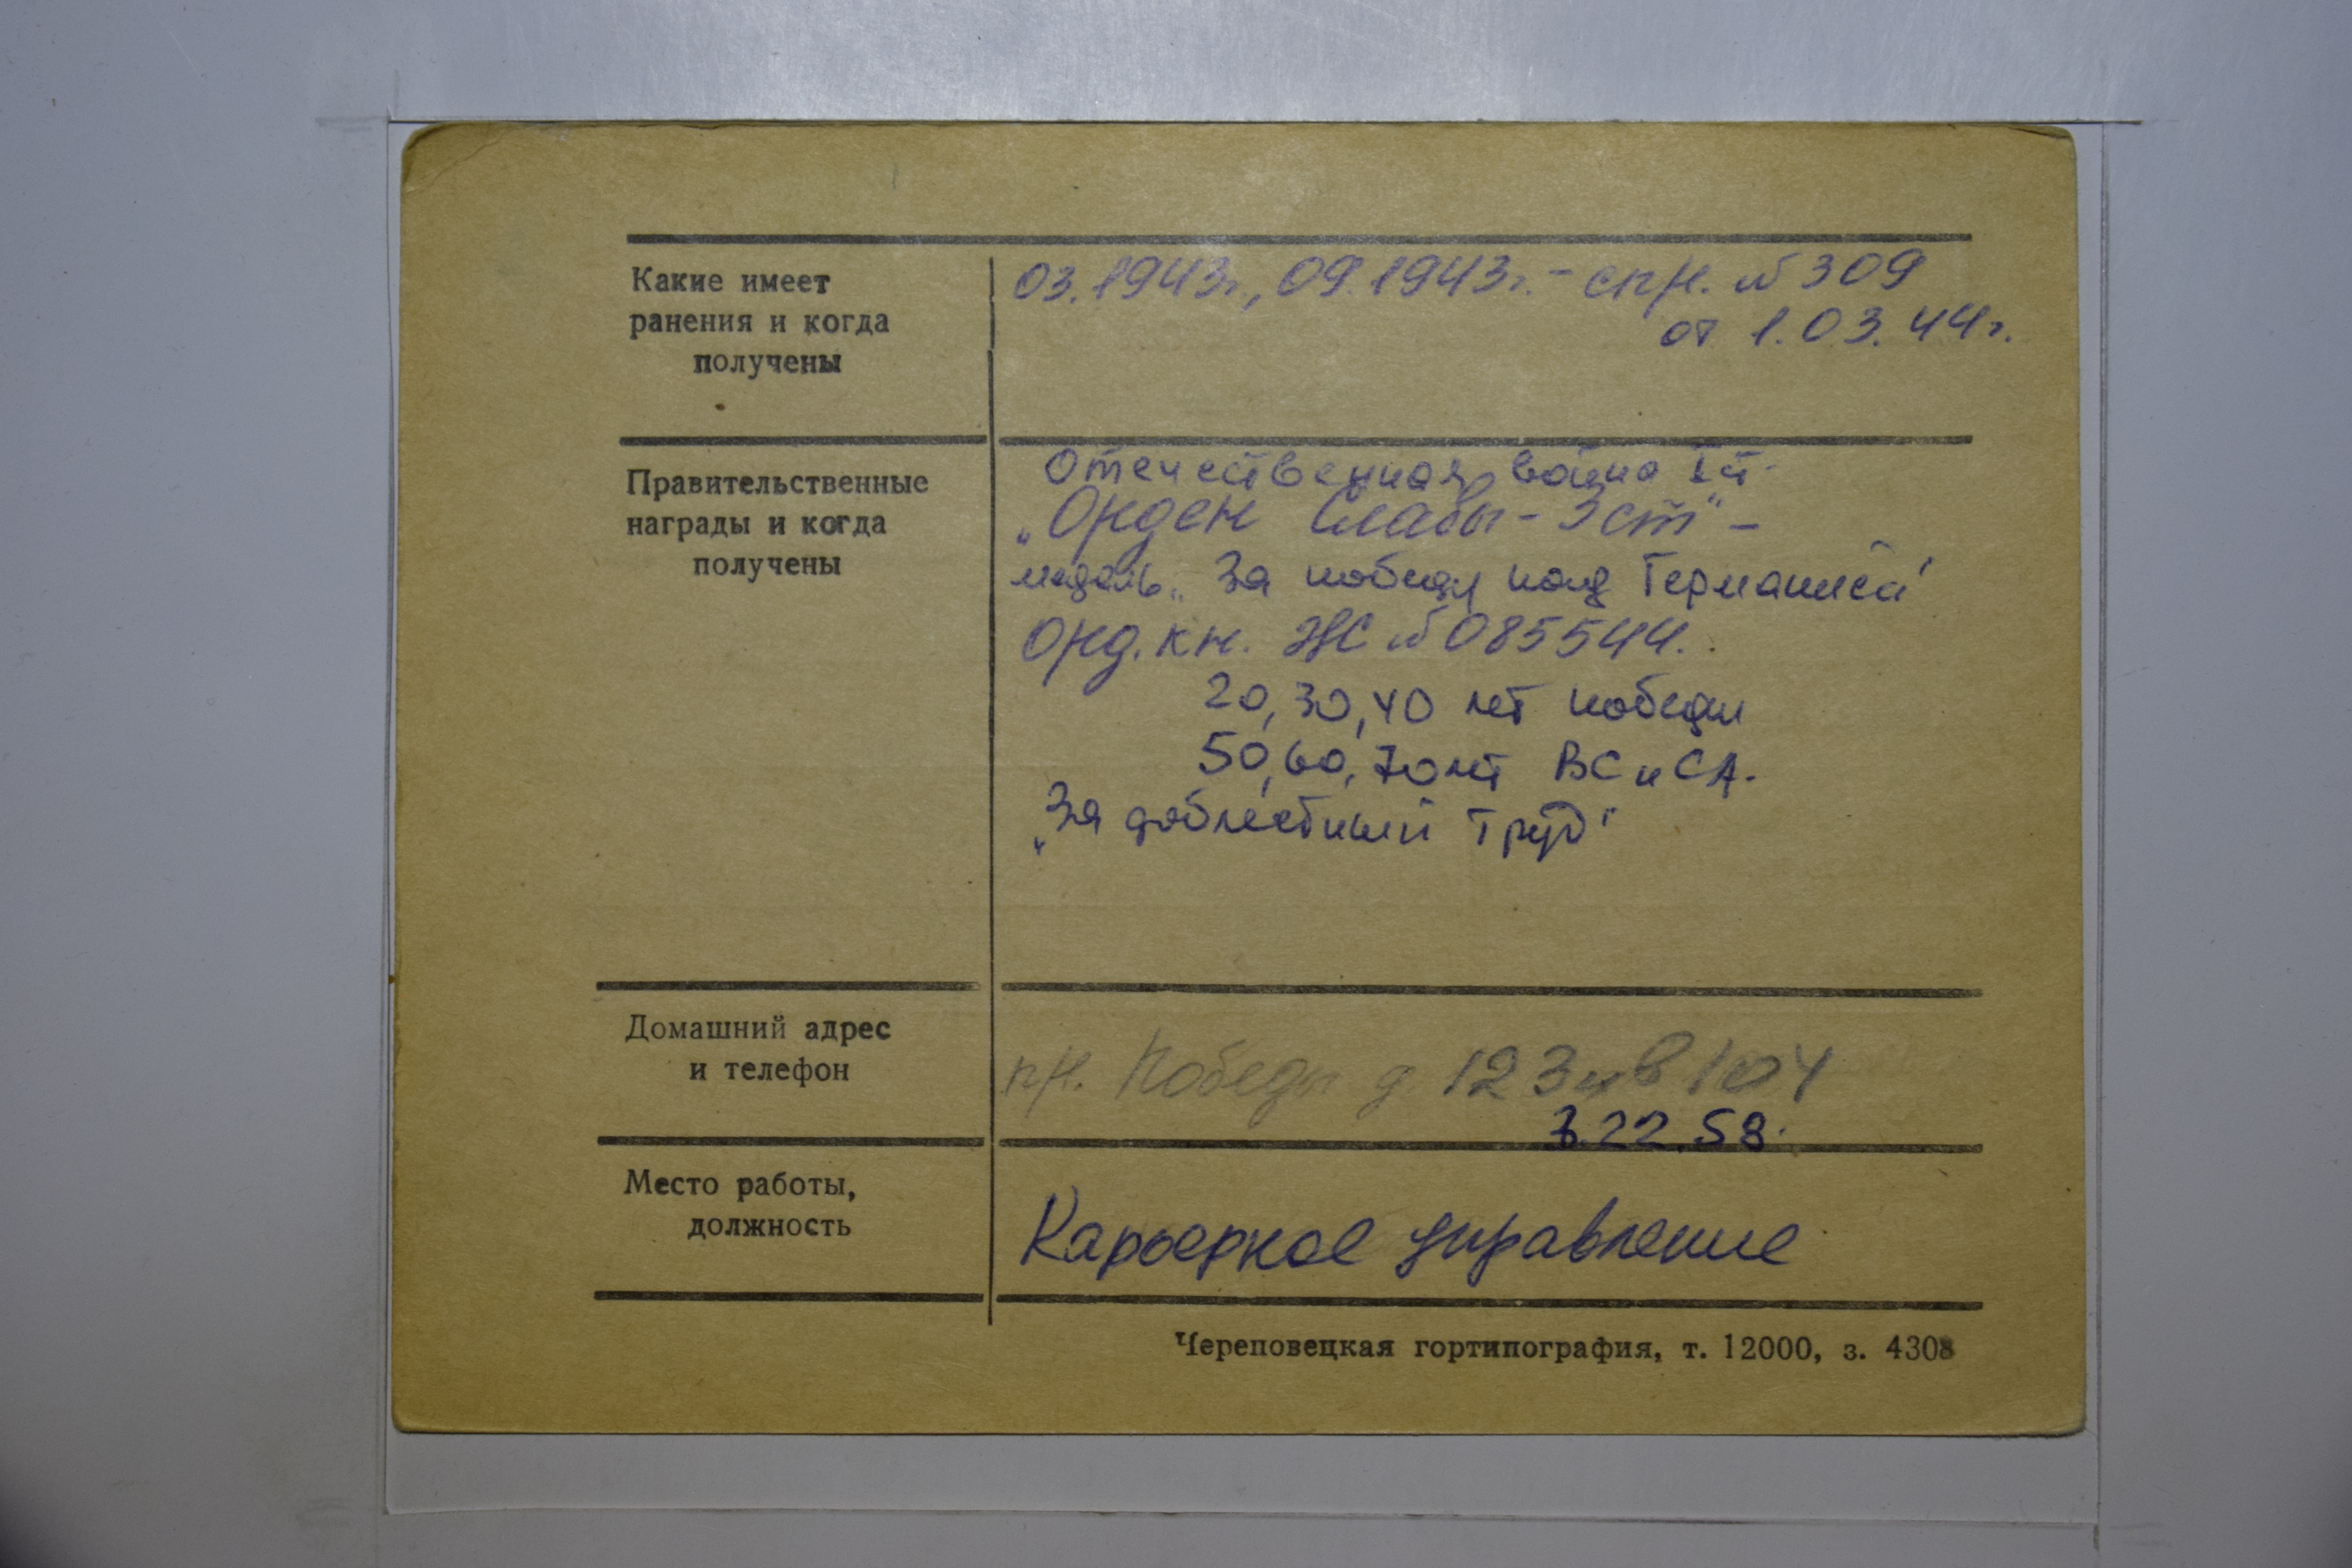 Какие имеет
ранения и когда
получены
03.1943г., 09.1943г. - спр. №309
от 1.03.44г.
Правительственные
награды и когда
получены
Отечественная война I ст.
„Орден Славы - 3 ст" -
медаль „За победу над Германией"
Орд. кн. ЖС №085544.
20, 30, 40 лет победы
50, 60, 70 лет ВС и СА.
„За доблестный труд"
Домашний адрес
и телефон
пр. Победы д. 123 кв 104
3.22.58.
Место работы,
должность
Карьерное управление
Череповецкая гортипография, т. 12000, з. 4308